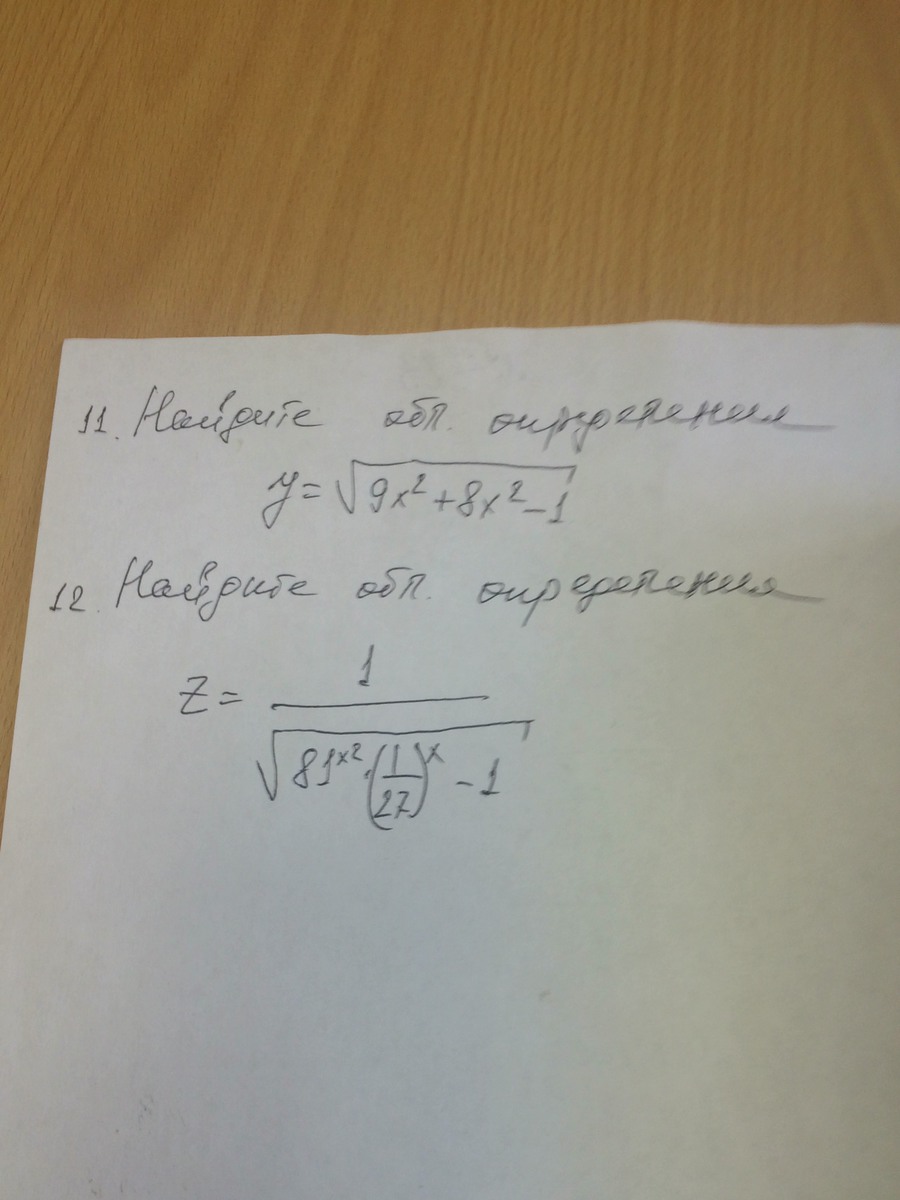 11. Найдите обл. определения
y = √(9x² + 8x² - 1)
12. Найдите обл. определения
z = 1 / √(81^(x²) · (1/27)^x - 1)